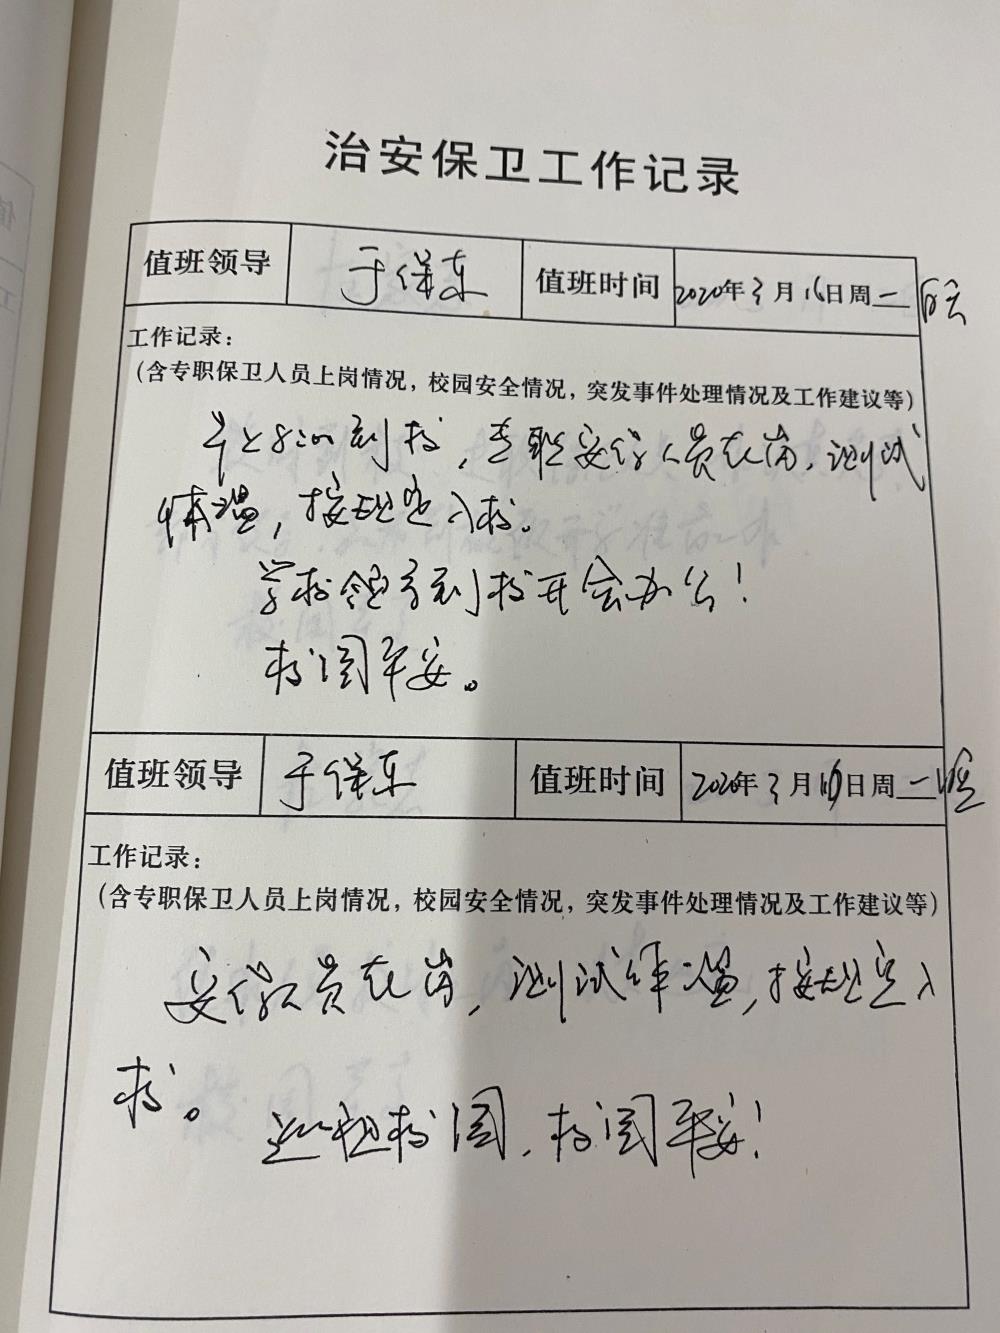 治安保卫工作记录
值班领导 于保东 值班时间 2020年3月16日周一 白天
工作记录：
（含专职保卫人员上岗情况，校园安全情况，突发事件处理情况及工作建议等）
早上8:00到校，专职安保人员在岗，测试
体温，按规定入校。
学校领导到校开会办公！
校园平安。
值班领导 于保东 值班时间 2020年3月16日周一 晚
工作记录：
（含专职保卫人员上岗情况，校园安全情况，突发事件处理情况及工作建议等）
安保人员在岗，测试体温，按规定入
校。
巡视校园，校园平安！